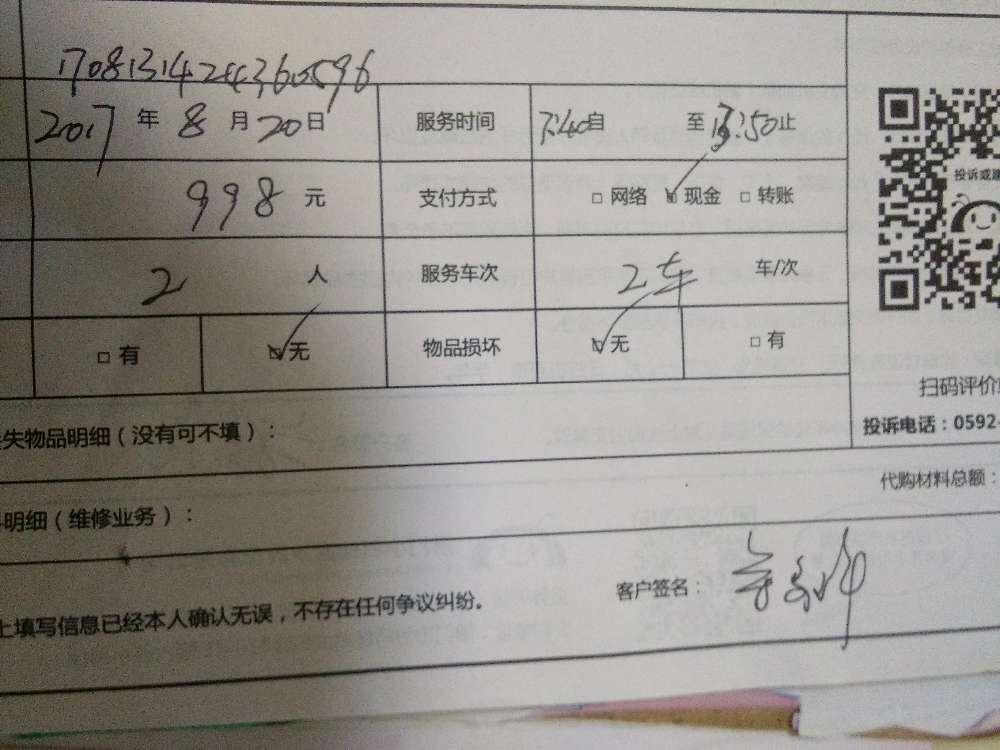 2017年8月20日 服务时间 7:40自 至 :50止
投诉或建
998元 支付方式 网络 现金 转账
2人 服务车次 2车 车/次
有 无 物品损坏 无 有
扫码评价
失物品明细（没有可不填）：
投诉电话：0592-
代购材料总额：
明细（维修业务）：
客户签名：
上填写信息已经本人确认无误，不存在任何争议纠纷。